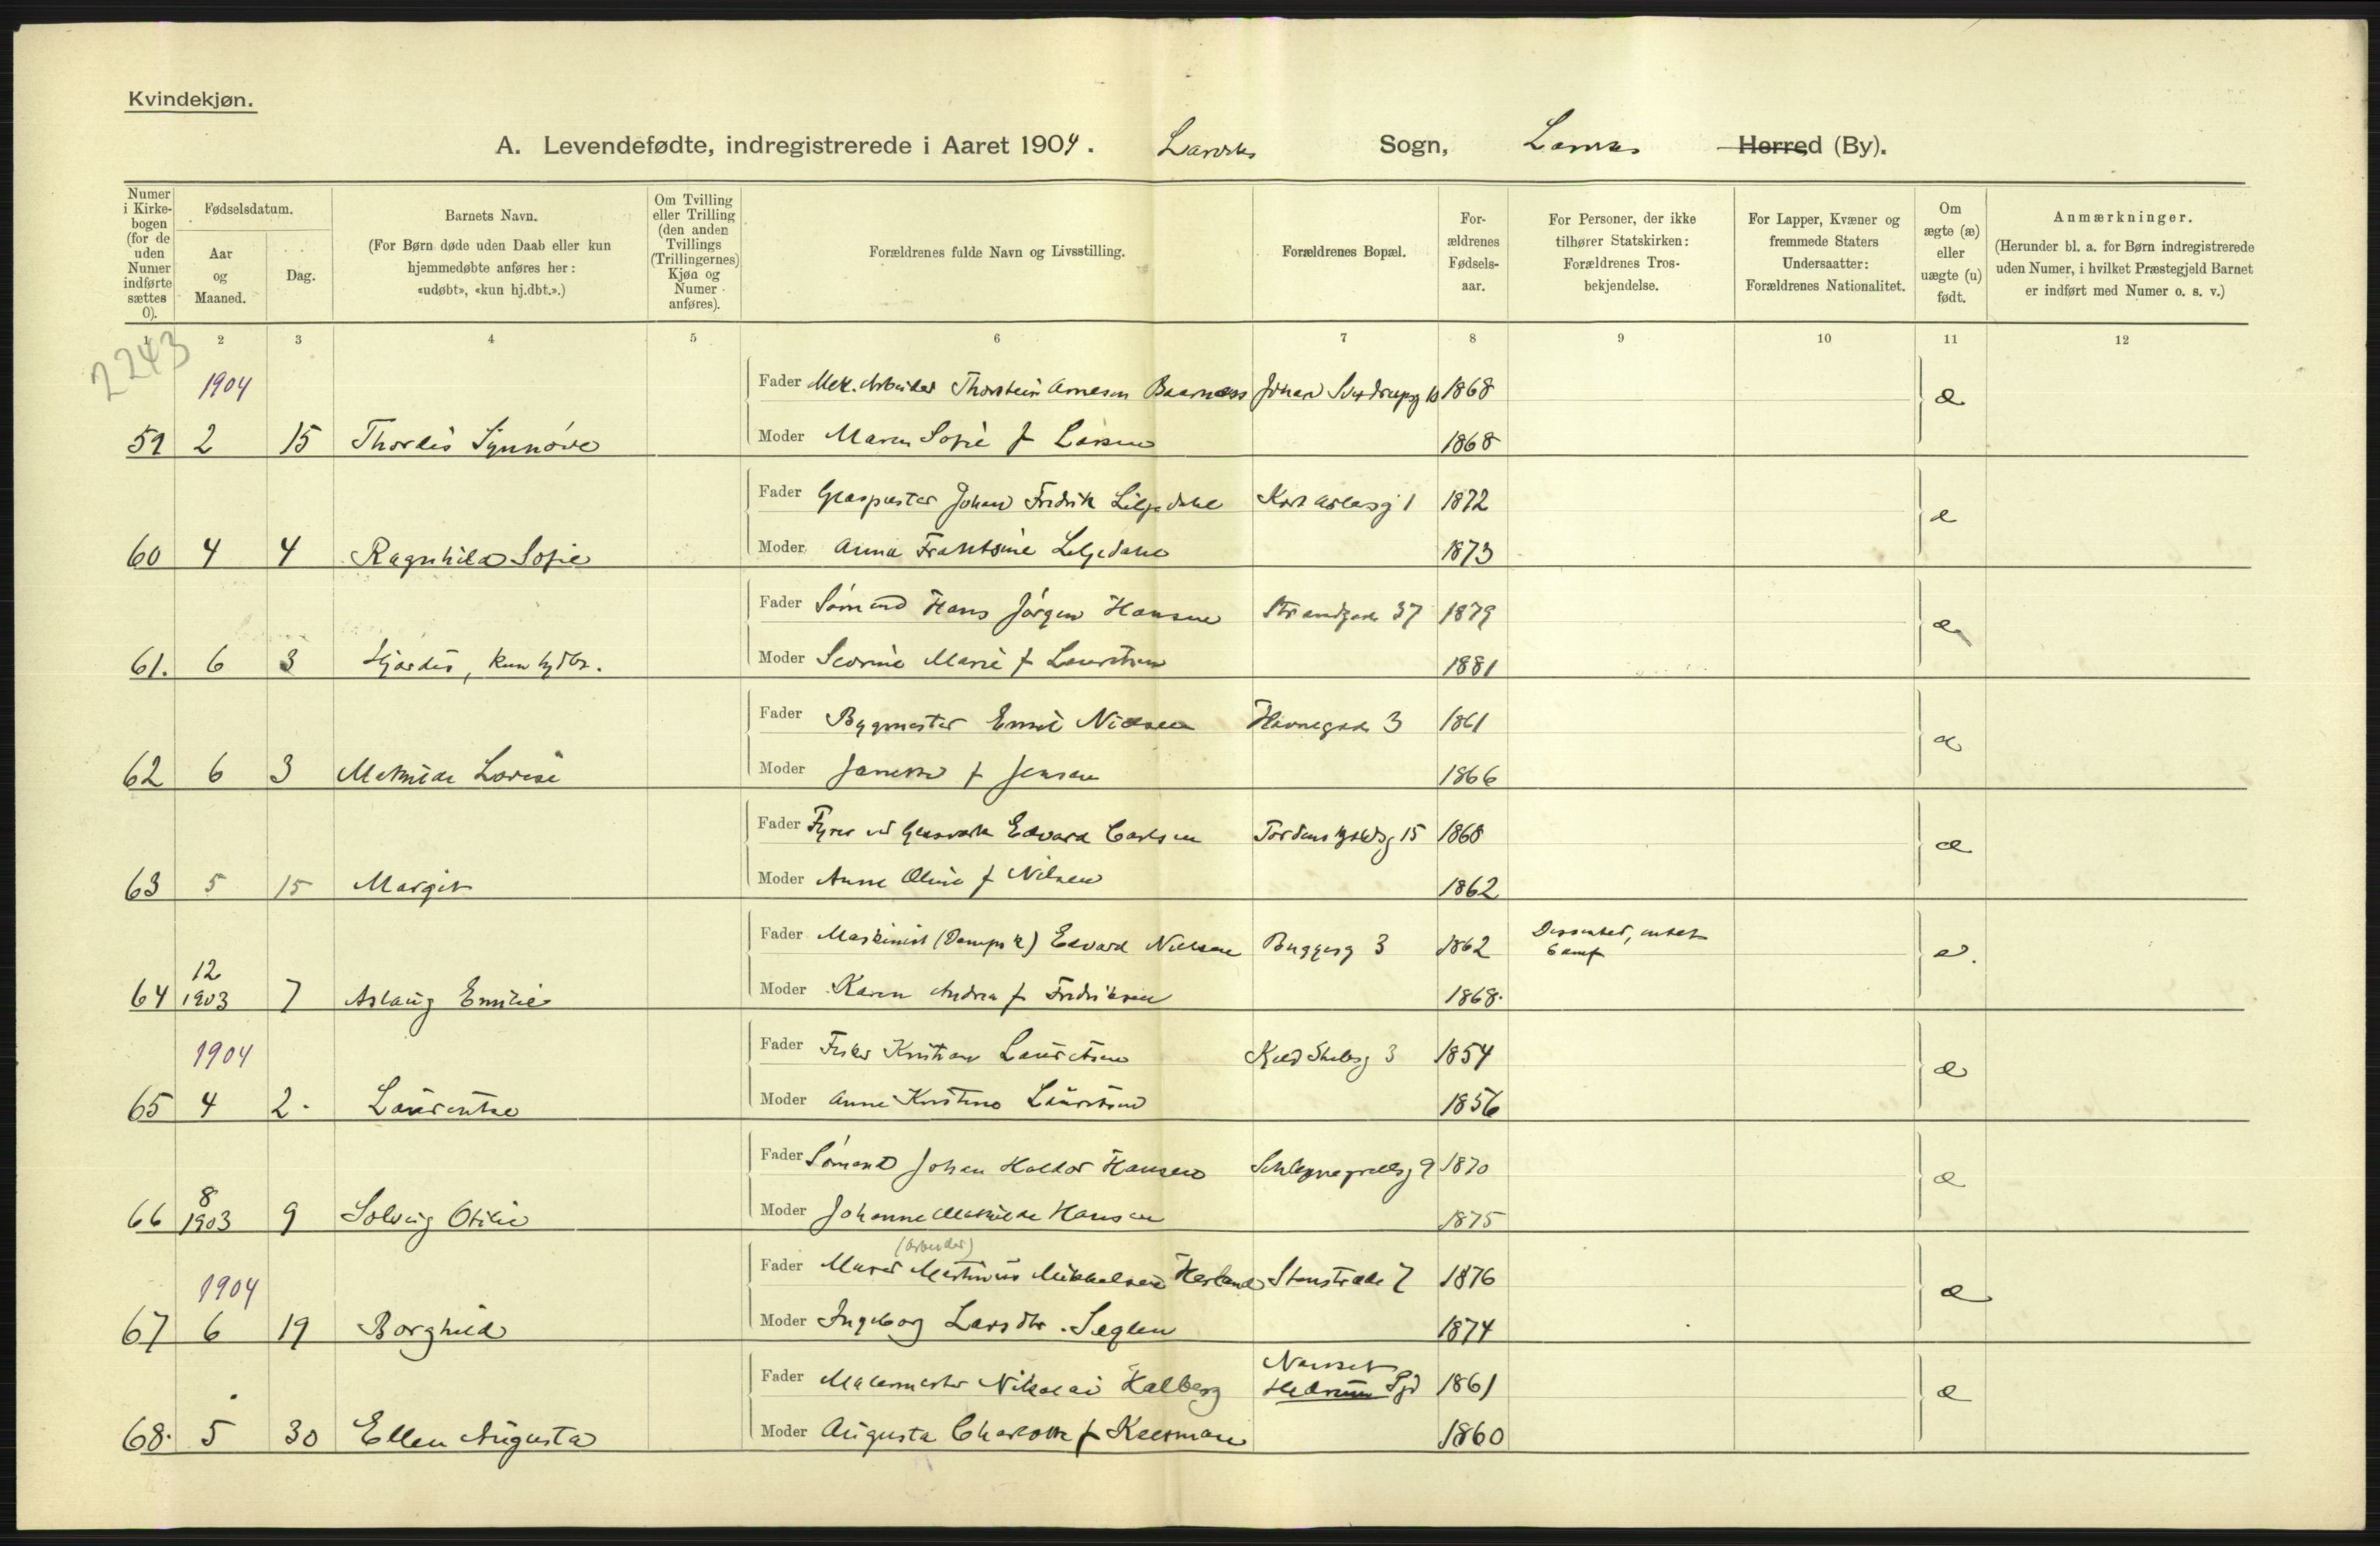 Kvindekjøn.
A. Levendefødte, indregistrerede i Aaret 1904. Larviks Sogn, Larviks Herred (By).
Numer i Kirkebogen (for de uden Numer indførte sættes 0).
Fødselsdatum.
Aar og Maaned.
Dag.
Barnets Navn.
(For Børn døde uden Daab eller kun hjemmedøbte anføres her: «udøbt», «kun hj.dbt.».)
Om Tvilling eller Trilling (den anden Tvillings (Trillingernes) Kjøn og Numer anføres).
Forældrenes fulde Navn og Livsstilling.
Forældrenes Bopæl.
Forældrenes Fødselsaar.
For Personer, der ikke tilhører Statskirken: Forældrenes Trosbekjendelse.
For Lapper, Kvæner og fremmede Staters Undersaatter: Forældrenes Nationalitet.
Om ægte (æ) eller uægte (u) født.
Anmærkninger.
(Herunder bl. a. for Børn indregistrerede uden Numer, i hvilket Præstegjeld Barnet er indført med Numer o. s. v.)
1 2 3 4 5 6 7 8 9 10 11 12
2243
1904
Fader Mek. Arbeider Thorstein Arnesen Baarnæss Johan Sverdrupsg 10 1868 æ
59 2 15 Thordis Synnöve Moder Maren Sofie f Larsen 1868
Fader Glaspuster Johan Fredrik Liljedahl 1 1872 æ
60 4 4 Ragnhild Sofie Moder Anna Frantsine Liljedahl 1873
Fader Sömand Hans Jörgen Hansen Strandgade 37 1879 æ
61. 6 3 Hjördis, kun hjdbt. Moder Severine Marie f Lauritsen 1881
Fader Bygmester Emil Nielsen Havnegade 3 1861 æ
62 6 3 Mathilde Lovise Moder f Jensen 1866
Fader Fyrer ved Glasværk Edvard Carlsen Tordenskjoldsg 15 1868 æ
63 5 15 Margit Moder Anne Oline f Nilsen 1862
Fader Maskinist (Dampsk) Edvard Nielsen Buggesg 3 1862 Dissenter, intet Samf æ.
64 12 1903 7 Aslaug Emilie Moder Karen Andrea f Fredriksen 1868.
1904
Fader Fisker Kristian Lauritsen 3 1854 æ
65 4 2. Laurentze Moder Anne Kristine Lauritsen 1856
Fader Sömand Johan Haldor Hansen 9 1870 æ
66 8 1903 9 Solveig Otilie Moder Johanne Mathilde Hansen 1875
(arbeider)
Fader Murer Martinius Mikkelsen Hesland Stenstræde 7 1876 æ
1904
67 6 19 Borghild Moder Ingeborg Larsdtr. Seglem 1874
Nanset
Fader Malermester Nikolai Halberg Hedrum Pgd 1861 æ
68. 5 30 Ellen Augusta Moder Augusta Charlotte f 1860